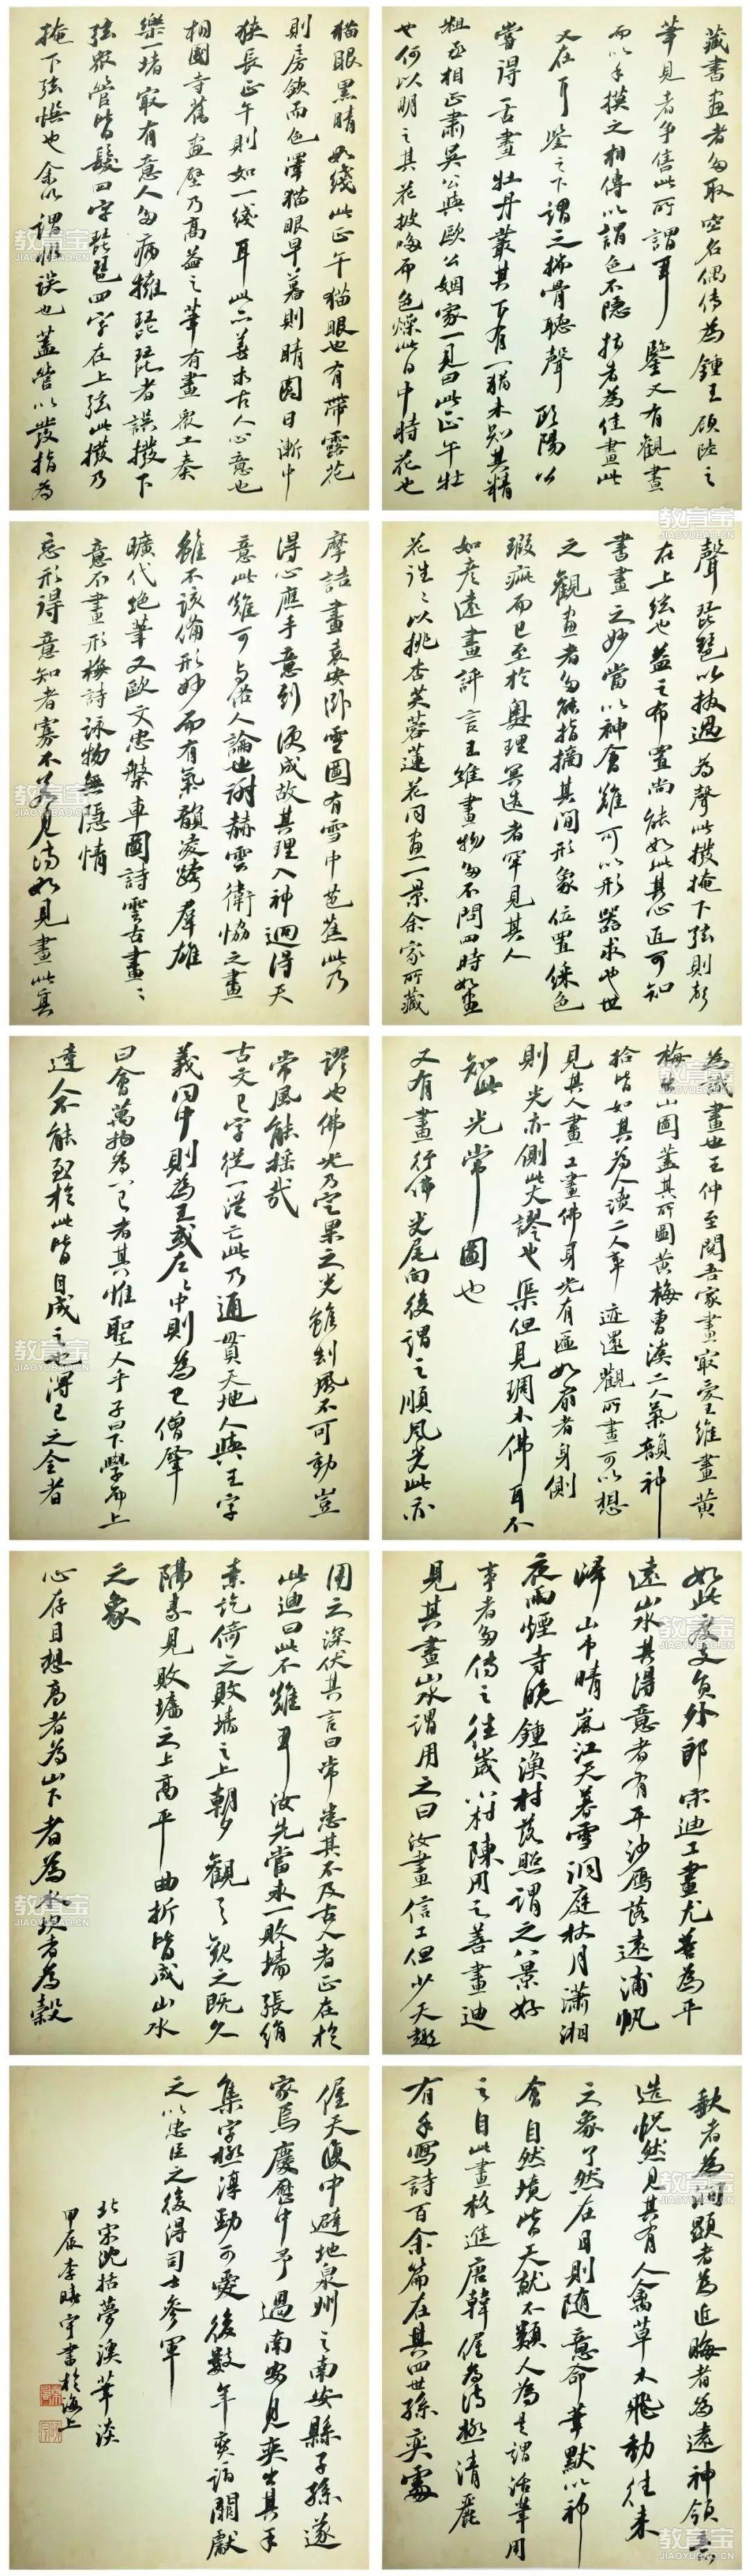 藏書畫者多取空名偶傳為鍾王顧陸之
筆見者爭售此所謂耳鑒又有觀畫
而以手摸之相傳以謂色不隱指者為佳畫此
又在耳鑒之下謂之揣骨聽聲歐陽公
嘗得古畫牡丹叢其下有一猫未知其精
粗丞相正肅吳公與歐公姻家一見曰此正午牡
也何以明之其花披哆而色燥此日中時花也
猫眼黑睛如綫此正午猫眼也有帶露花
則房斂而色澤猫眼早暮則睛圓日漸中
狹長正午則如一綫耳此亦善求古人心意也
相國寺舊畫壁乃高益之筆有畫眾工奏
樂一堵最有意人多病擁琵琶者誤撥下
弦眾管皆發四字琵琶四字在上弦此撥乃
掩下弦誤也余以謂非誤也蓋管以發指為
聲琵琶以撥過為聲此撥掩下弦則聲
在上弦也益之布置尚能如此其心匠可知
書畫之妙當以神會難可以形器求也世
之觀畫者多能指摘其間形象位置綵色
瑕疵而已至於奧理冥造者罕見其人
如彥遠畫評言王維畫物多不問四時如畫
花往往以桃杏芙蓉蓮花同畫一景余家所藏
摩詰畫袁安卧雪圖有雪中芭蕉此乃
得心應手意到便成故其理入神迥得天
意此難可與俗人論也謝赫雲衛協之畫
雖不該備形妙而有氣韻凌跨羣雄
曠代絕筆又歐文忠盤車圖詩雲古畫畫
意不畫形梅詩詠物無隱情
忘形得意知者寡不若見詩如見畫此真
為識畫也王仲至閱吾家畫最愛王維畫黃
梅出山圖蓋其所圖黃梅曹溪二人氣韻神
拾皆如其為人讀二人事迹還觀所畫可以想
見其人畫工畫佛身光有匾如扇者身側
則光亦側此大謬也渠但見琱木佛耳不
知此光常圓也
又有畫行佛光尾向後謂之順風光此亦
謬也佛光乃定果之光雖劫風不可動豈
常風能搖哉
古文己字從一從亡此乃通貫天地人與王字
義同中則為王或左右中則為己僧肇
曰會萬物為一己者其惟聖人乎子曰下學而上
達人不能至於此皆自成之也得己之全者
如此度支員外郎宋迪工畫尤善為平
遠山水其得意者有平沙雁落遠浦帆
歸山市晴嵐江天暮雪洞庭秋月瀟湘
夜雨煙寺晚鍾漁村落照謂之八景好
事者多傳之往歲小村陳用之善畫迪
見其畫山水謂用之曰汝畫信工但少天趣
用之深伏其言曰常患其不及古人者正在於
此迪曰此不難耳汝先當求一敗墻張絹
素訖倚之敗墻之上朝夕觀之觀之既久
隔素見敗墻之上高平曲折皆成山水
之象
心存目想高者為山下者為水坎者為穀
缺者為澗顯者為近晦者為遠神領意
造怳然見其有人禽草木飛動往來
之象了然在目則隨意命筆默以神
會自然境皆天就不類人為是謂活筆用
之自此畫格進唐韓偓為詩極清麗
有手寫詩百余篇在其四世孫奕處
偓天復中避地泉州之南安縣子孫遂
家焉慶曆中予過南安見奕出其手
集字極淳勁可愛後數年奕詣闕獻
之以忠臣之後得司士參軍
北宋沈括夢溪筆談
甲辰李晴宇書於海上
教育宝
JIAOYUBAO.CN